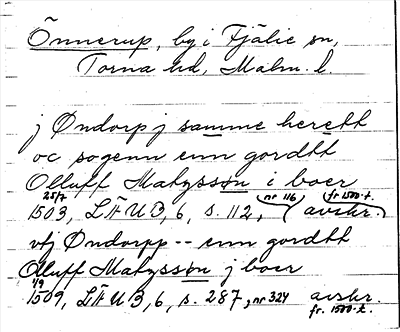 Önnerup, by i Fjälie sn,
Torna hd, Malm. l.
j Øndorp j samme herett
oc sogenn enn gordtt
Olluff Matzssøn i boer
25/7 nr 116 fr 1500-t.
1503, LÄUB, 6, s. 112, (avskr.)
vtj Øndorpp -- enn gordtt
Olluff Matzssøn j boer
1/9
1509, LÄUB, 6, s. 287, nr 324 avskr.
fr. 1500-t.